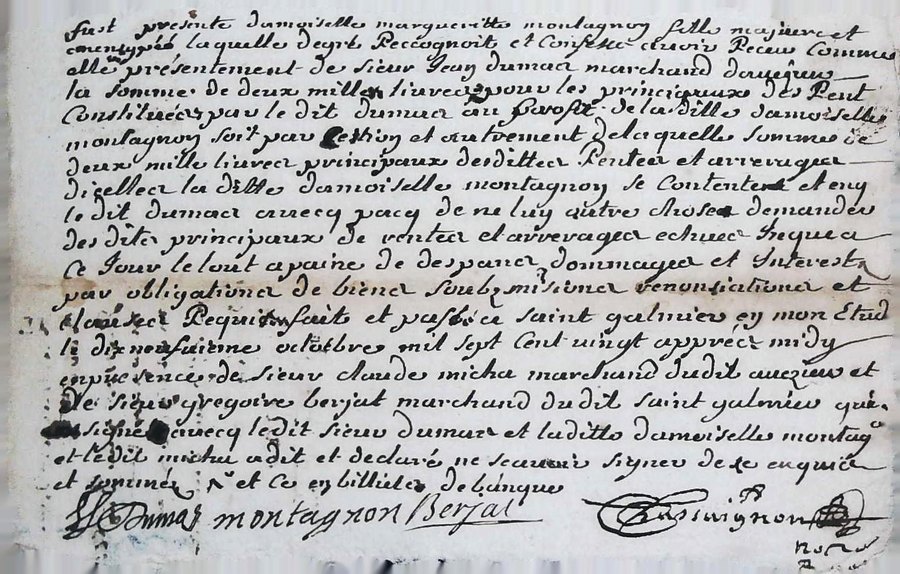 fust presente damoiselle margueritte montagnon fille majeure et
laquelle degré Recognoit et Confesse avoir Receu Comme
elle présentement de sieur Jean dumas marchand
la somme de deux mille livres pour les principaux des Rent
Constituées par le dit dumas au proffit de la ditte damoiselle
montagnon soit par Cession et autrement de laquelle somme de
deux mille livres principaux desdittes Rentes et arrerages
dicelles la ditte damoiselle montagnon se Contente et en
le dit dumas avecq pacq de ne luy autre chose demander
des dits principaux de rentes et arrerages echues Jusques a
Ce Jour le tout a paine de despans dommages et Interest
par obligations de biens soubzmisions renonsiations et
clauses Requi fait et passé a saint galmier en mon Etud
le dix neufuieme octobre mil sept Cent vingt apprés midy
en presence de sieur claude micha marchand dudit et
de sieur gregoire berjat marchand du dit saint galmier qui
signé avecq le dit sieur dumas et la ditte damoiselle montag
et ledit micha a dit et declaré ne scavoir signer de ce enquis
et sommés et Ce en billiets de banque
Dumas montagnon Berjat